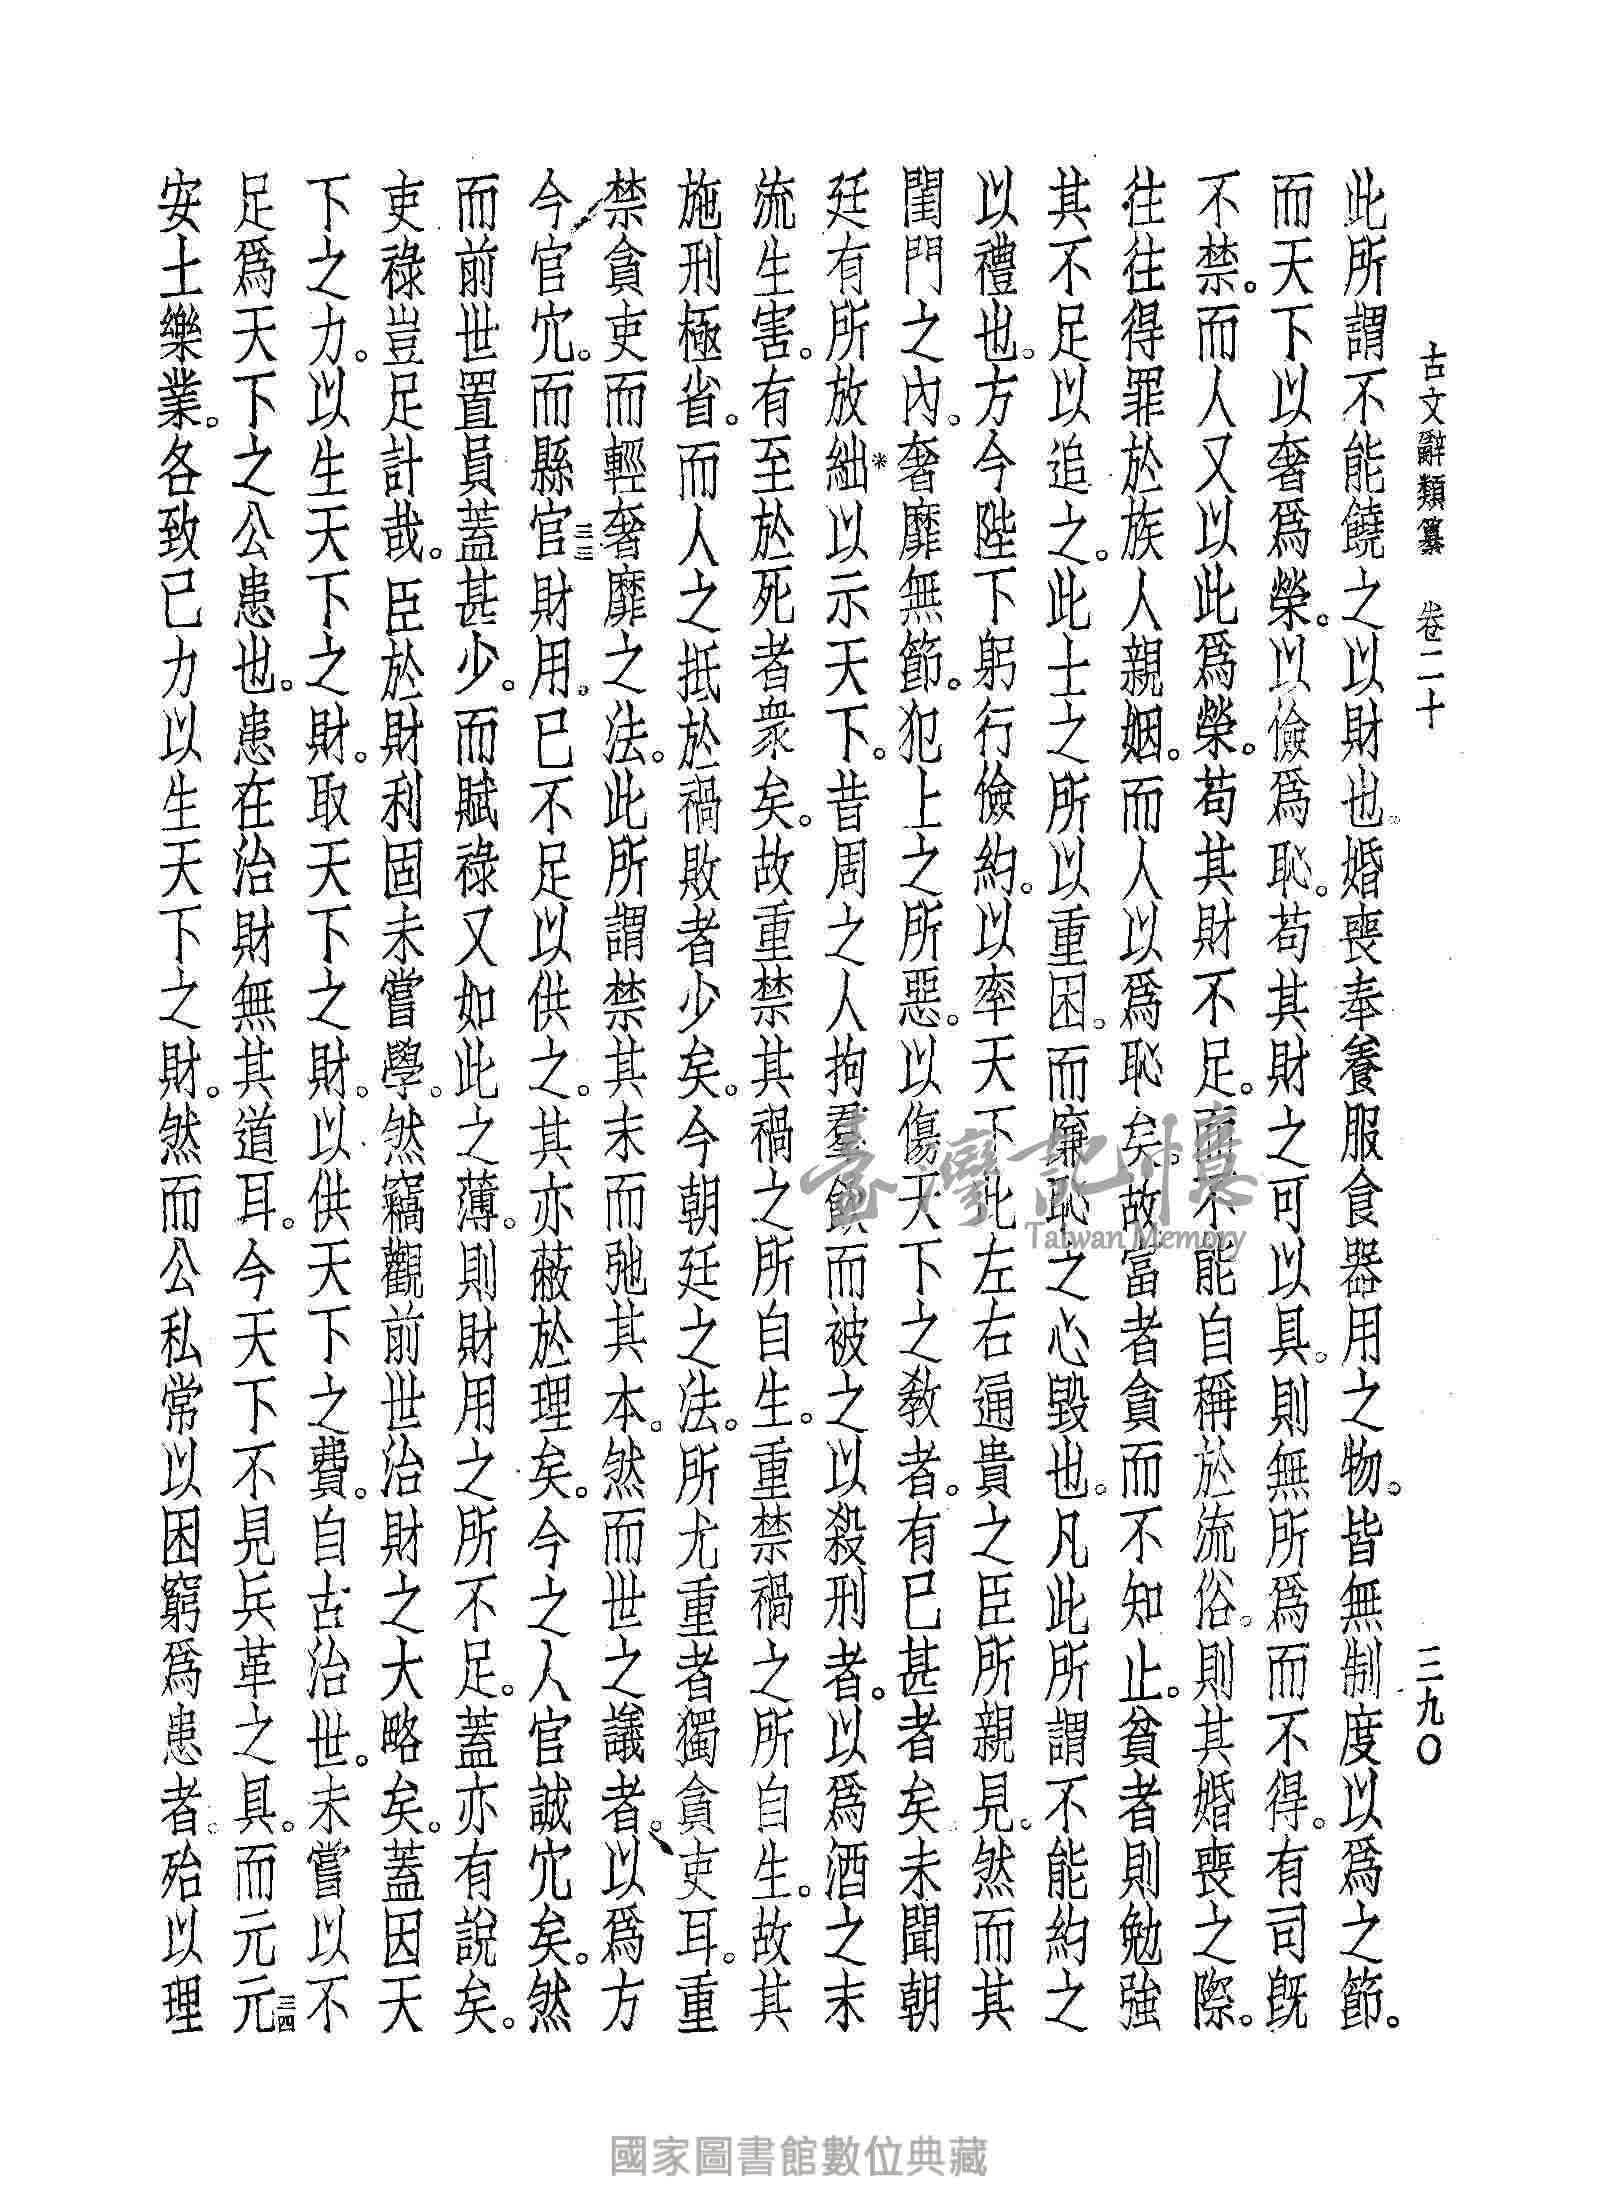 古文辭類纂　卷二十　三九〇
此所謂不能饒之以財也。婚喪奉養服食器用之物。皆無制度以爲之節。
而天下以奢爲榮。以儉爲恥。苟其財之可以具。則無所爲而不得。有司旣
不禁。而人又以此爲榮。苟其財不足。而不能自稱於流俗。則其婚喪之際。
往往得罪於族人親姻。而人以爲恥矣。故富者貪而不知止。貧者則勉強
其不足以追之。此士之所以重困。而廉恥之心毀也。凡此所謂不能約之
以禮也。方今陛下躬行儉約。以率天下。此左右通貴之臣所親見。然而其
閨門之內。奢靡無節。犯上之所惡。以傷天下之敎者。有已甚者矣未聞朝
廷有所放絀*以示天下。昔周之人拘羣飲而被之以殺刑者。以爲酒之末
流生害。有至於死者衆矣。故重禁其禍之所自生。重禁禍之所自生。故其
施刑極省。而人之抵於禍敗者少矣。今朝廷之法。所尤重者獨貪吏耳。重
禁貪吏而輕奢靡之法。此所謂禁其末而弛其本。然而世之議者。以爲方
今官宂。而縣官三三財用。已不足以供之。其亦蔽於理矣。今之人官誠宂矣。然
而前世置員蓋甚少。而賦祿又如此之薄。則財用之所不足。蓋亦有說矣。
吏祿豈足計哉。臣於財利固未嘗學。然竊觀前世治財之大略矣。蓋因天
下之力。以生天下之財。取天下之財。以供天下之費。自古治世。未嘗以不
足爲天下之公患也。患在治財無其道耳。今天下不見兵革之具。而元元三四
安土樂業。各致己力以生天下之財。然而公私常以困窮爲患者。殆以理
臺灣記憶
Taiwan Memory
國家圖書館數位典藏